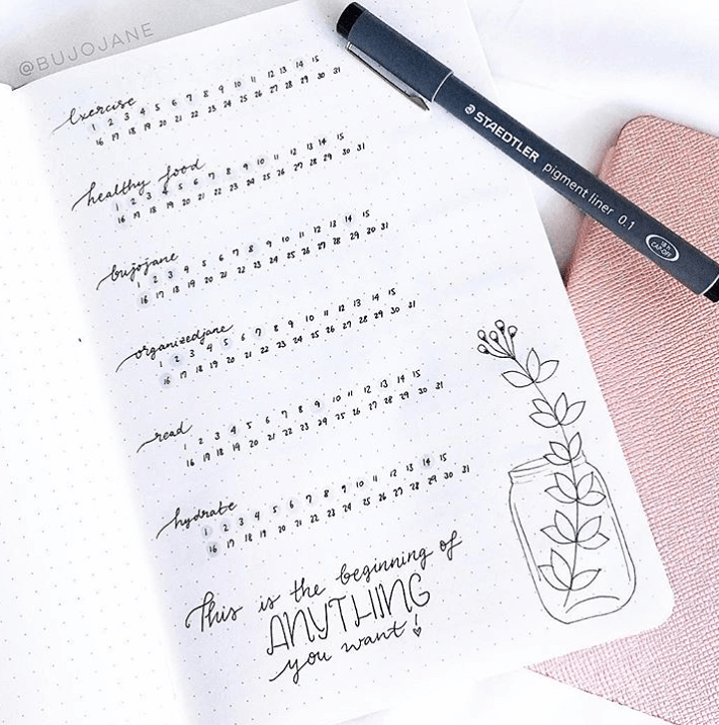 @BUJOJANE
exercise
1 2 3 4 5 6 7 8 9 10 11 12 13 14 15
16 17 18 19 20 21 22 23 24 25 26 27 28 29 30 31
healthy food
1 2 3 4 5 6 7 8 9 10 11 12 13 14 15
16 17 18 19 20 21 22 23 24 25 26 27 28 29 30 31
bujojane
1 2 3 4 5 6 7 8 9 10 11 12 13 14 15
16 17 18 19 20 21 22 23 24 25 26 27 28 29 30 31
organizedjane
1 2 3 4 5 6 7 8 9 10 11 12 13 14 15
16 17 18 19 20 21 22 23 24 25 26 27 28 29 30 31
read
1 2 3 4 5 6 7 8 9 10 11 12 13 14 15
16 17 18 19 20 21 22 23 24 25 26 27 28 29 30 31
hydrate
1 2 3 4 5 6 7 8 9 10 11 12 13 14 15
16 17 18 19 20 21 22 23 24 25 26 27 28 29 30 31
This is the beginning of
ANYTHING
you want!
STAEDTLER pigment liner 0.1
18 h
CAP-OFF